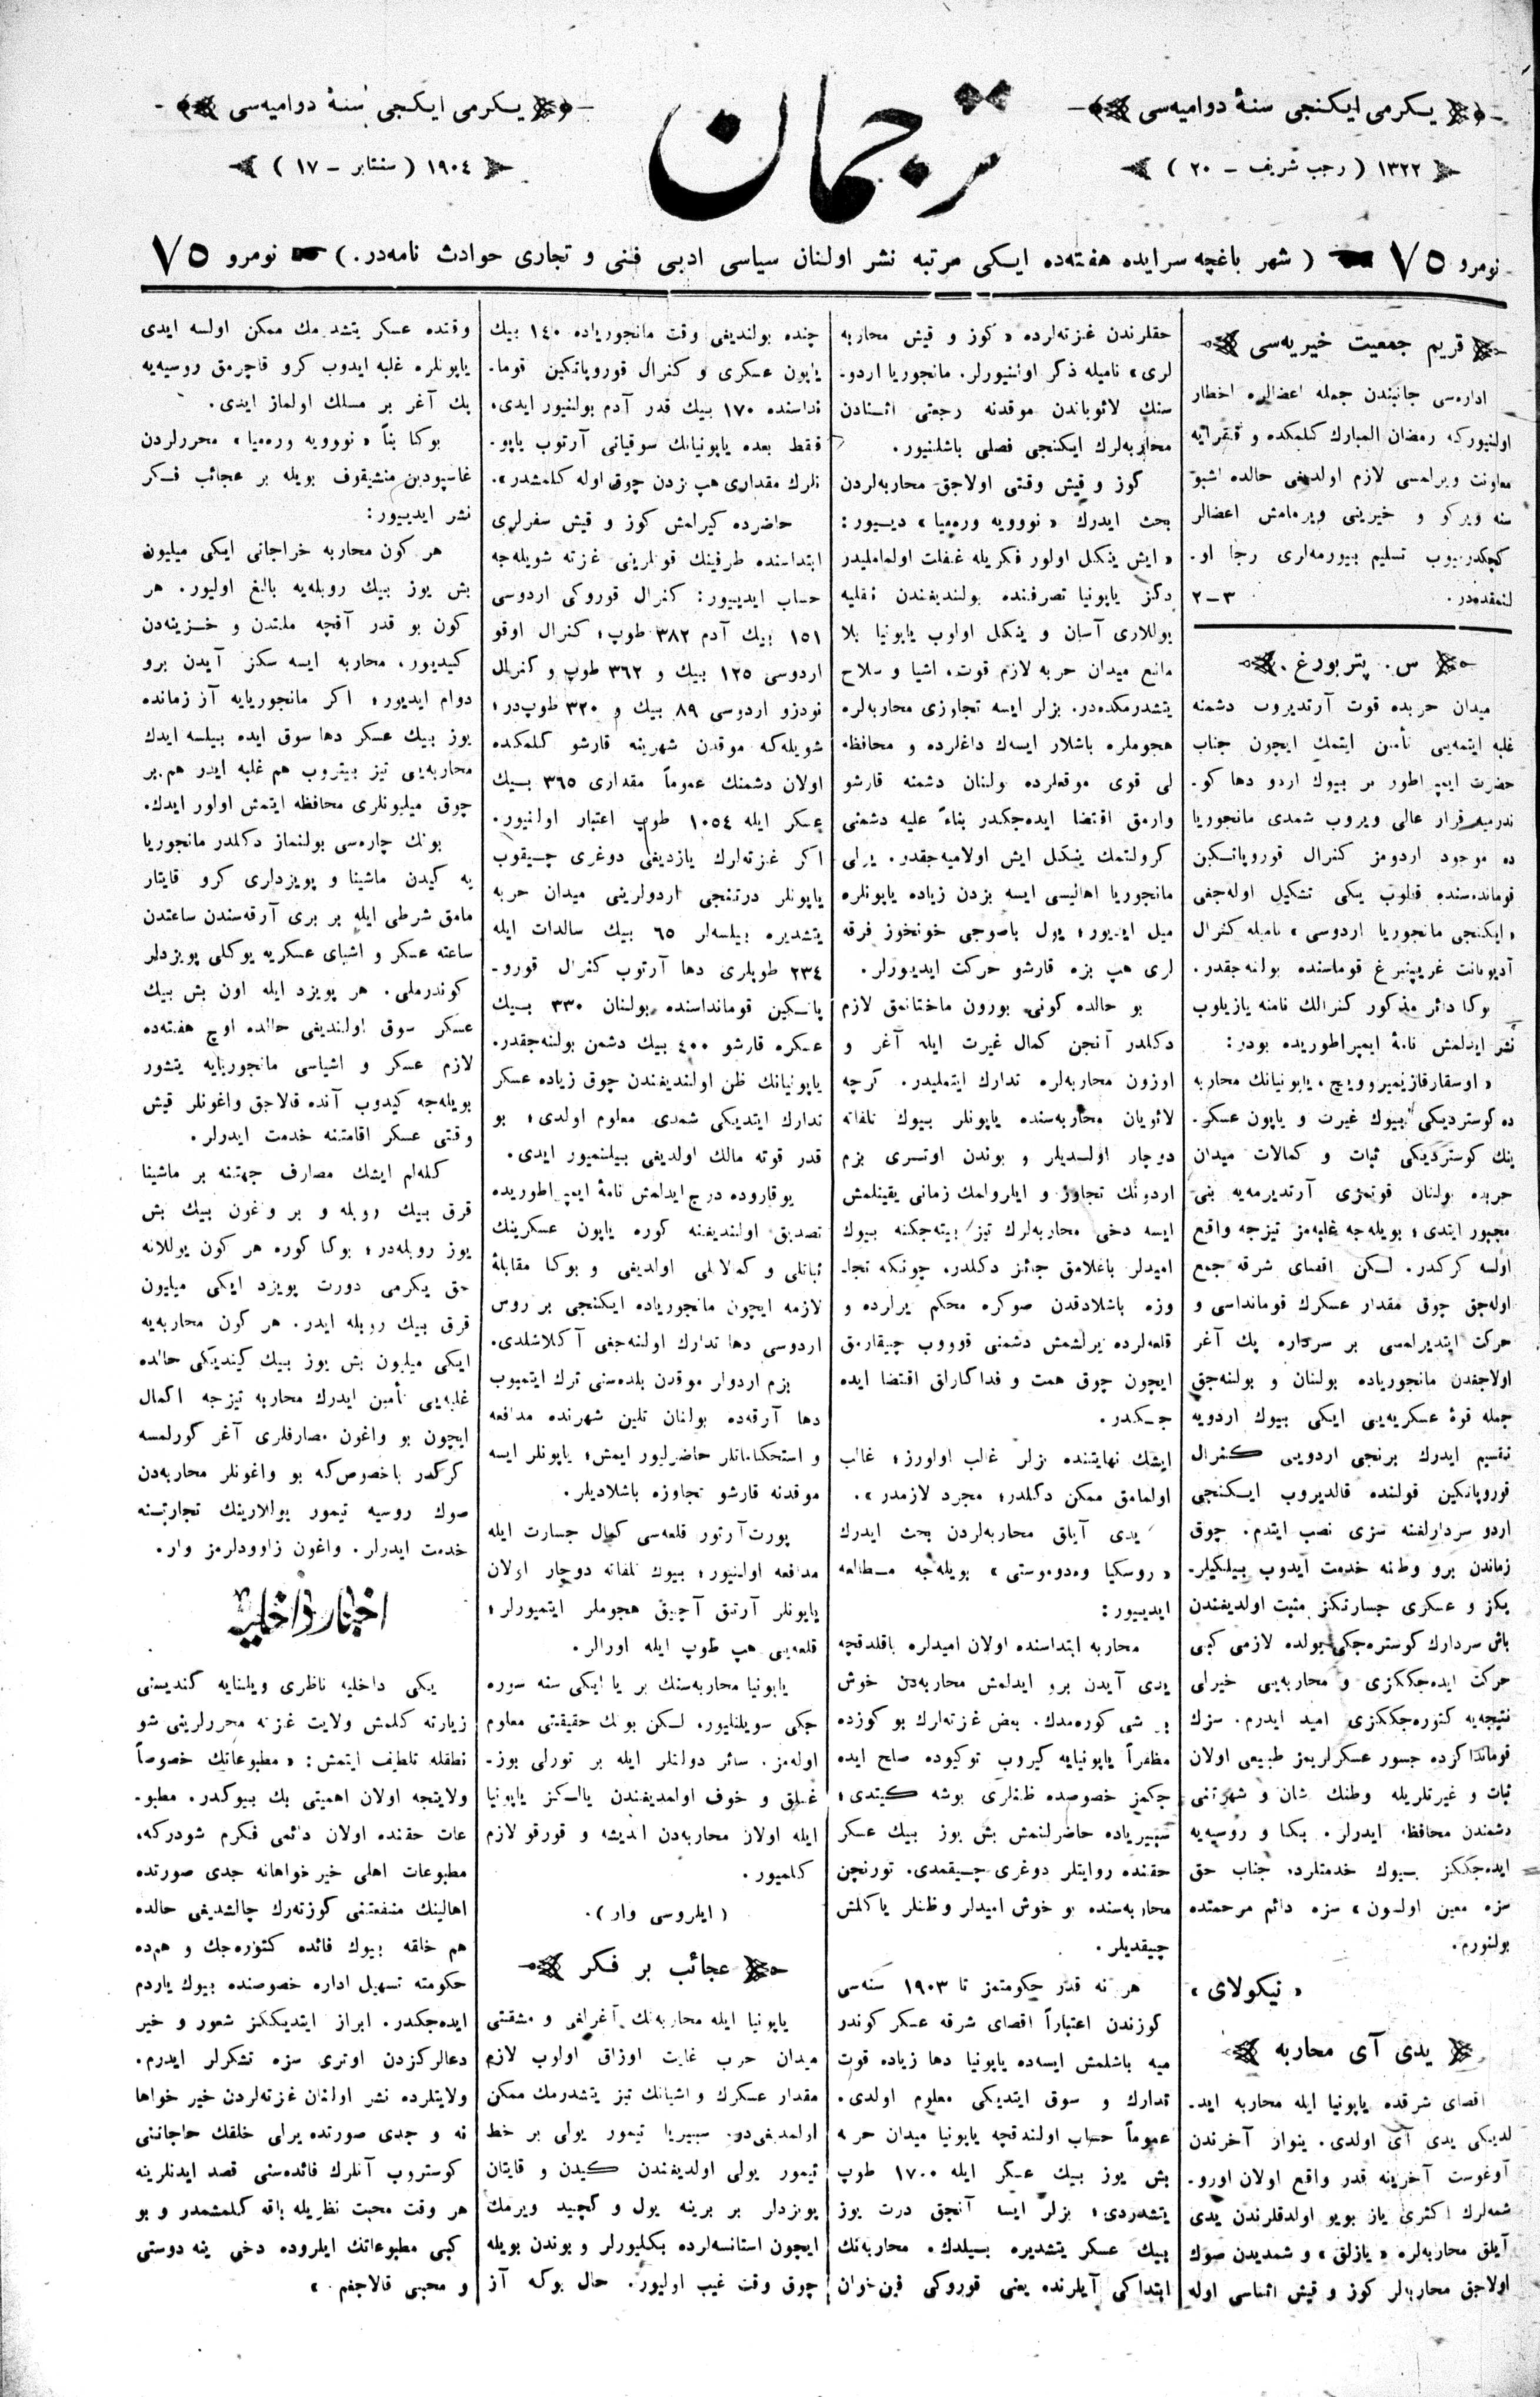 يكرمی ايكنجی سنهٔ دواميه‌سی
۱۳۲۲ ( رجب شريف – ۲۰ )
ترجمان
يكرمی ايكنجی سنهٔ دواميه‌سی
۱۹۰٤ ( سنتابر – ۱۷ )
نومرو ۷٥ ( شهر باغچه سرايده هفته‌ده ايكی مرتبه نشر اولنان سياسی ادبی فنی و تجاری حوادث نامه‌در. ) نومرو ۷٥
قريم جمعيت خيريه‌سی
اداره‌سی جانبندن جمله اعضالره اخطار
اولنيوركه رمضان المبارك كلمكده و فقرايه
معاونت ويرلمسی لازم اولديغی حالده اشبو
سنه ويركو و خيرينی ويرمامش اعضالر
كچكدرميوب تسليم بيورمه‌لری رجا او-
لنمقده‌در. ۳–۲
س. پتربورغ.
ميدان حربده قوت آرتديروب دشمنه
غلبه ايتمه‌يی تأمين ايتمك ايچون جناب
حضرت ايمپراطور بر بيوك اردو دها كو-
ندرميه قرار عالی ويروب شمدی مانجوريا
ده موجود اردومز كنرال قوروپاتكين
قومانده‌سنده قلوب يكی تشكيل اوله‌جغی
«ايكنجی مانجوريا اردوسی» ناميله كنرال
آديوتانت غريپنبرغ قوماسنده بولنه‌جقدر.
بوكا دائر مذكور كنرالك نامنه يازيلوب
نشر ايدلمش نامهٔ ايمپراطوريده بودر:
« اوسقارفازيميروويچ، ياپونيانك محاربه
ده كوسترديكی بيوك غيرت و ياپون عسكر-
ينك كوسترديكی ثبات و كمالات ميدان
حربده بولنان قوتمزی آرتديرمه‌يه بنی
مجبور ايتدی؛ بويله‌جه غلبه‌مز تيزجه واقع
اولسه كركدر. لكن اقصای شرقه جمع
اوله‌جق چوق مقدار عسكرك قومانداسی و
حركت ايتديرلمسی بر سرداره پك آغر
اولاجغندن مانجورياده بولنان و بولنه‌جق
جمله قوهٔ عسكريه‌يی ايكی بيوك اردويه
تقسيم ايدرك برنجی اردويی كنرال
قوروپاتكين قولنده قالديروب ايكنجی
اردو سردارلغنه سزی نصب ايتدم. چوق
زماندن برو وطنه خدمت ايدوب بيلكيلر-
يكز و عسكری جسارتكز مثبت اولديغندن
باش سردارك كوستره‌جكی يولده لازمی كبی
حركت ايده‌جككزی و محاربه‌يی خيرلی
نتيجه‌يه كتوره‌جككزی اميد ايدرم. سزك
قومانداكزده جسور عسكرلريمز طبيعی اولان
ثبات و غيرتلريله وطنك شان و شهرتنی
دشمندن محافظه ايدرلر. بكا و روسيه‌يه
ايده‌جككز بيوك خدمتلرده جناب حق
سزه معين اولسون» سزه دائم مرحمتده
بولنورم.
« نيكولای »
يدی آی محاربه
اقصای شرقده ياپونيا ايله محاربه ايد-
لديكی يدی آی اولدی. ينوار آخرندن
آوغوست آخرينه قدر واقع اولان اورو-
شمه‌لرك اكثری ياز بويو اولدقلرندن يدی
آيلق محاربه‌لره «يازلق» و شمديدن صوك
اولاجق محاربه‌لر كوز و قيش اثناسی اوله
حقلرندن غزته‌لرده «كوز و قيش محاربه
لری» ناميله ذكر اولنيورلر. مانجوريا اردو-
سنك لائوياندن موقدنه رجعتی اثنادن
محاربه‌لرك ايكنجی فصلی باشلنيور.
كوز و قيش وقتی اولاجق محاربه‌لردن
بحث ايدرك «نووويه وره‌ميا» ديسور:
« ايش ينكل اولور فكريله غفلت اولماميلدر
دكز ياپونيا تصرفنده بولنديغندن نقليه
يوللاری آسان و ينكل اولوب ياپونيا بلا
مانع ميدان حربه لازم قوت، اشيا و سلاح
يتشدرمكده‌در. بزلر ايسه تجاوزی محاربه‌لره
هجوملره باشلار ايسه‌ك داغلرده و محافظه
لی قوی موقعلرده بولنان دشمنه قارشو
وارمق اقتضا ايده‌جكدر بناءً عليه دشمنی
كرولتمك ينكل ايش اولاميه‌جقدر. يرلی
مانجوريا اهاليسی ايسه بزدن زياده ياپونلره
ميل ايديور؛ يول باصوجی خونخوز فرقه
لری هپ بزه قارشو حركت ايديورلر.
بو حالده كونی بورون ماختانمق لازم
دكلدر آنجق كمال غيرت ايله آغر و
اوزون محاربه‌لره تدارك ايتمليدر. كرچه
لائويان محاربه‌سنده ياپونلر بيوك تلفاته
دوچار اولمشديلر و بوندن اوتری بزم
اردونك تجاوز و ايلرولمك زمانی يقينلمش
ايسه دخی محاربه‌لرك تيز بيته‌جكنه بيوك
اميدلر باغلامق جائز دكلدر. چونكه تجا-
وزه باشلادقدن صوكره محكم يرلرده و
قلعه‌لرده يرلشمش دشمنی قووب چيقارمق
ايچون چوق همت و فداكارلق اقتضا ايده
جكدر.
ايشك نهايتنده بزلر غالب اولورز؛ غالب
اولمامق ممكن دكلدر؛ مجرد لازمدر».
يدی آيلق محاربه‌لردن بحث ايدرك
«روسكيا وه‌دوموستی» بويله‌جه مطالعه
ايديبور:
محاربه ابتداسنده اولان اميدلره باقلدقچه
يدی آيدن برو ايدلمش محاربه‌دن خوش
بر شی كوره‌مدك. بعض غزته‌لرك بو كوزده
مظفراً ياپونيايه كيروب توكيوده صلح ايده
جكمز خصوصده ظنلری بوشه كيتدی؛
سيبيرياده حاضرلنمش بش يوز بيك عسكر
حقنده روايتلر دوغری چيقمدی. تورنچن
محاربه‌سنده بو خوش اميدلر و ظنلر ياكلش
چيقديلر.
هر نه قدر حكومتمز تا ۱۹۰۳ سنه‌سی
كوزندن اعتباراً اقصای شرقه عسكر كوندر
ميه باشلمش ايسه‌ده ياپونيا دها زياده قوت
تدارك و سوق ايتديكی معلوم اولدی.
عموماً حساب اولندقچه ياپونيا ميدان حربه
بش يوز بيك عسكر ايله ۱۷۰۰ طوپ
يتشدردی؛ بزلر ايسه آنجق درت يوز
بيك عسكر يتشديره بيلدك. محاربه‌نك
ابتداكی آيلرنده يعنی قوروكی فين‌خوان
چنده بولنديغی وقت مانجورياده ۱٤۰ بيك
ياپون عسكری و كنرال قوروپاتكين قوما-
نداسنده ۱۷۰ بيك قدر آدم بولنيور ايدی.
فقط بعده ياپونيانك سوقياتی آرتوب ياپو-
نلرك مقداری هپ بزدن چوق اوله كلمشدر».
حاضرده كيرلمش كوز و قيش سفرلری
ابتداسنده طرفينك قوتلرينی غزته شويله‌جه
حساب ايديبور: كنرال قوروكی اردوسی
۱٥۱ بيك آدم ۳۸۲ طوپ؛ كنرال اوقو
اردوسی ۱۲٥ بيك و ۳٦۲ طوپ و كنرال
نودزو اردوسی ۸۹ بيك و ۳۲۰ طوپ‌در؛
شويله‌كه موقدن شهرينه قارشو كلمكده
اولان دشمنك عموماً مقداری ۳٦٥ بيك
عسكر ايله ۱۰٥٤ طوپ اعتبار اولنيور.
اكر غزته‌لرك يازديغی دوغری چيقوب
ياپونلر درتنجی اردولرينی ميدان حربه
يتشديره بيلسه‌لر ٦٥ بيك سالدات ايله
۲۳٤ طوپلری دها آرتوب كنرال قورو-
پاتكين قومانداسنده بولنان ۳۳۰ بيك
عسكره قارشو ٤۰۰ بيك دشمن بولنه‌جقدر.
ياپونيانك ظن اولنديغندن چوق زياده عسكر
تدارك ايتديكی شمدی معلوم اولدی؛ بو
قدر قوته مالك اولديغی بيلنميور ايدی.
يوقاروده درج ايدلمش نامهٔ ايمپراطوريده
تصديق اولنديغنه كوره ياپون عسكرينك
ثباتلی و كمالاتلی اولديغی و بوكا مقابلهٔ
لازمه ايچون مانجورياده ايكنجی بر روس
اردوسی دها تدارك اولنه‌جغی آكلاشلدی.
بزم اردولر موقدن بلده‌سنی ترك ايتميوب
دها آرقه‌ده بولنان تلين شهرنده مدافعه
و استحكاماتلر حاضرليور ايمش؛ ياپونلر ايسه
موقدنه قارشو تجاوزه باشلاديلر.
پورت آرتور قلعه‌سی كمال جسارت ايله
مدافعه اولنيور؛ بيوك تلفاته دوچار اولان
ياپونلر آرتق آچيق هجوملر ايتميورلر؛
قلعه‌يی هپ طوپ ايله اورالر.
ياپونيا محاربه‌سنك بر يا ايكی سنه سوره
جكی سويلنليور. لكن بونك حقيقتی معلوم
اوله‌مز. سائر دولتلر ايله بر تورلی بوز-
غنلق و خوف اولمديغندن يالكز ياپونيا
ايله اولان محاربه‌دن انديشه و قورقو لازم
كلميور.
( ايلروسی وار ).
عجائب بر فكر
ياپونيا ايله محاربه‌نك آغرلغی و مشقتی
ميدان حرب غايت اوزاق اولوب لازم
مقدار عسكرك و اشيانك تيز يتشدرمك ممكن
اولمديغی‌در. سيبيريا تيمور يولی بر خط
تيمور يولی اولديغندن كيدن و قايتان
پويزدلر بر برينه يول و كچيد ويرمك
ايچون استانسه‌لرده بكليورلر و بوندن بويله
چوق وقت غيب اوليور. حال بوكه آز
وقتده عسكر يتشدرمك ممكن اولسه ايدی
ياپونلره غلبه ايدوب كرو قاچرمق روسيه‌يه
پك آغر بر مسلك اولماز ايدی.
بوكا بناً «نووويه وره‌ميا» محررلردن
غاسپودين منشيقوف بويله بر عجائب فكر
نشر ايديبور:
هر كون محاربه خراجاتی ايكی ميليون
بش يوز بيك روبله‌يه بالغ اوليور. هر
كون بو قدر آقچه ملتدن و خزينه‌دن
كيديور. محاربه ايسه سكز آيدن برو
دوام ايديور؛ اكر مانجوريايه آز زمانده
يوز بيك عسكر دها سوق ايده بيلسه ايدك
محاربه‌يی تيز بيتروب هم غلبه ايدر هم بر
چوق ميليونلری محافظه ايتمش اولور ايدك.
بونك چاره‌سی بولنماز دكلدر مانجوريا
يه كيدن ماشينا و پويزداری كرو قايتار
مامق شرطی ايله بر بری آرقه‌سندن ساعتدن
ساعته عسكر و اشيای عسكريه يوكلی پويزدلر
كوندرملی. هر پويزد ايله اون بش بيك
عسكر سوق اولنديغی حالده اوچ هفته‌ده
لازم عسكر و اشياسی مانجوريايه يتشور
بويله‌جه كيدوب آنده قالاجق واغونلر قيش
وقتی عسكر اقامتنه خدمت ايدرلر.
كله‌لم ايشك مصارف جهتنه بر ماشينا
قرق بيك روبله و بر واغون بيك بش
يوز روبله‌در؛ بوكا كوره هر كون يوللانه
جق يكرمی دورت پويزد ايكی ميليون
قرق بيك روبله ايدر. هر كون محاربه‌يه
ايكی ميليون بش يوز بيك كيتديكی حالده
غلبه‌يی تأمين ايدرك محاربه تيزجه اكمال
ايچون بو واغون مصارفلری آغر كورلمسه
كركدر باخصوص‌كه بو واغونلر محاربه‌دن
صوك روسيه تيمور يوللارينك تجارتنه
خدمت ايدرلر. واغون زاوودلرمز وار.
اخبار داخليه
يكی داخليه ناظری ويلنايه كنديسنی
زيارته كلمش ولايت غزته محررلرينی شو
نطقله تلطيف ايتمش: «مطبوعاتك خصوصاً
ولايتجه اولان اهميتی پك بيوكدر. مطبو-
عات حقنده اولان دائمی فكرم شودركه،
مطبوعات اهلی خيرخواهانه جدی صورتده
اهالينك منفعتنی كوزته‌رك چالشديغی حالده
هم خلقه بيوك فائده كتوره‌جك و هم‌ده
حكومته تسهيل اداره خصوصنده بيوك ياردم
ايده‌جكدر. ابراز ايتديككز شعور و خير
دعالركزدن اوتری سزه تشكرلر ايدرم.
ولايتلرده نشر اولنان غزته‌لردن خير خواها
نه و جدی صورتده يرلی خلقك حاجاتنی
كوستروب آنلرك فائده‌سنی قصد ايدنلرينه
هر وقت محبت نظريله باقه كلمشمدر و بو
كبی مطبوعاتك ايلروده دخی ينه دوستی
و محبی قالاجغم. »